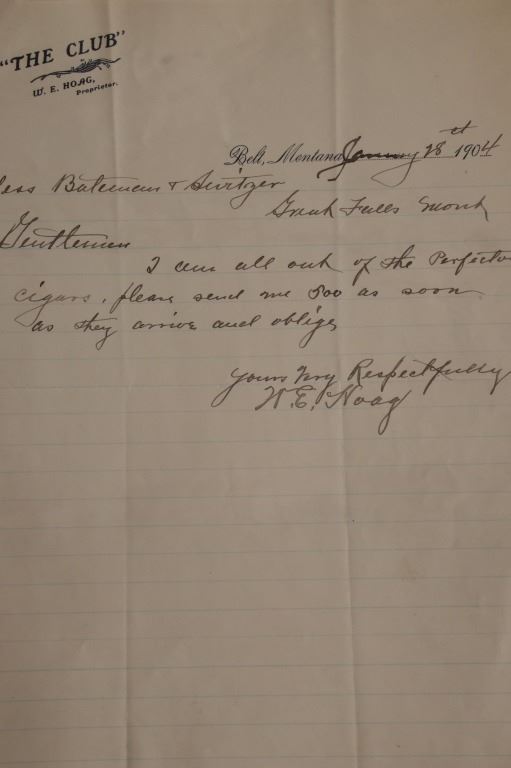 "THE CLUB"
W. E. HOAG,
Proprietor.
Belt, Montana January 28th 1904
ess Bateman & Switzer
Great Falls Mont
Gentlemen
I am all out of the Perfecto
cigars. please send me 500 as soon
as they arrive and oblige
yours Very Respectfully
W. E. Hoag